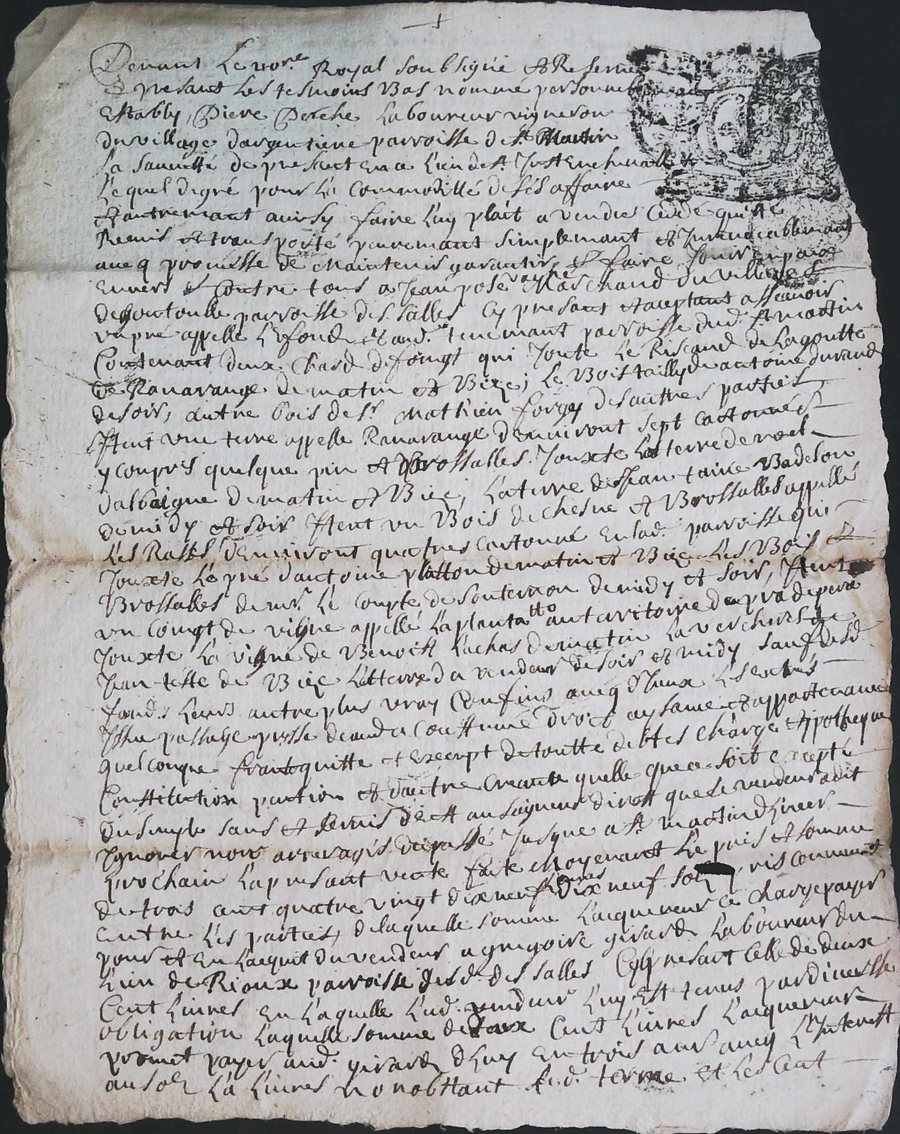 Devant Le no.re Royal soubsigné et Reservé
& presant les tesmoins bas nommé personne
Estably, Piere Perche Laboureur vigneron
du village dargentiere parroisse de st Martin
la sauveté de presant en ce Lieu de st Just En chevalle
Lequel de gré pour La commodité de sés affaire
et autremant ainsy faire Luy plait a vendus cedé quitté
Remis et transporté purement simplemant et Inrevocablemant
avecq promesse de Maintenir garantir & faire Jouir en paix
Envers et contre tous a Jean marchand du village
parroisse des salles Cy presant et aceptant assavoir
un pré appellé Le fond et aud. tenemant parroisse dud. st martin
Contenant deux chard de foingt qui Jouste Le Risand de Lagoutte
de Ranarange de matin et Bize, Le Bois tailly de antoine durand
de soir, autre bois de sr. Mathieu forge des autres parties
Ittent une terre appellé Ranarange d'environt sept cartonnés
y compris quelque pin et Brossalles Jouxte La terre de noel
dalbaigne de matin et Bize, La terre de Jean taire
de midy et soir Ittent un Bois de chesne et Brossalles appellé
Les Rasses d'environt quatres cartonne En lad. parroisse qui
Jouxte Le pré dantoine platton de matin et Bize Les Bois et
Brossalles de mr. Le Compte de souternon de midy et soir, Ittent
un Coingt de vigne appellé La planta au territoire de
Jouxte La vigne de Benoit Lachas de matin La verchere de
Jean teste de Bize La terre du vendeur de soir et midy sauf desd.
fond. Leurs autre plus vray Confins avecq d'Iceux Les entrés
Issue passage prise deaud. Couttume droit aysance et appartenance
quelconque franc quitte et exempt de toutte debtes charge et ypotheque
Constitution pantion et d'autre Creante quelle que ce soit excepté
du simple sans et servis deub au saigneur direct que Le vendeur a dit
Ignorer nors arreragés du passé Jusque a st martin d'hiver
prochain La presant vente faite Moyenant Le pris et somme
de trois cent quatre vingt dix neuf Livres dix neuf sol pris convenus
entre Les parties, de laquelle somme Lacquereur ce charge payer
pour et En Lacquit du vendeur a gregoire girard Laboureur du
Lieu de Rioux parroisse desd. des salles Cy presant Celle de deux
Cent Livres En Laquelle Lud. vendeur Luy Est tenus par diverse
obligation Laquelle somme de deux Cent Livres Lacquereur
promet payer aud. girard d'huy En trois ans avecq L'interest
au sol La Livres nonobstant Led. terme et Les Cent